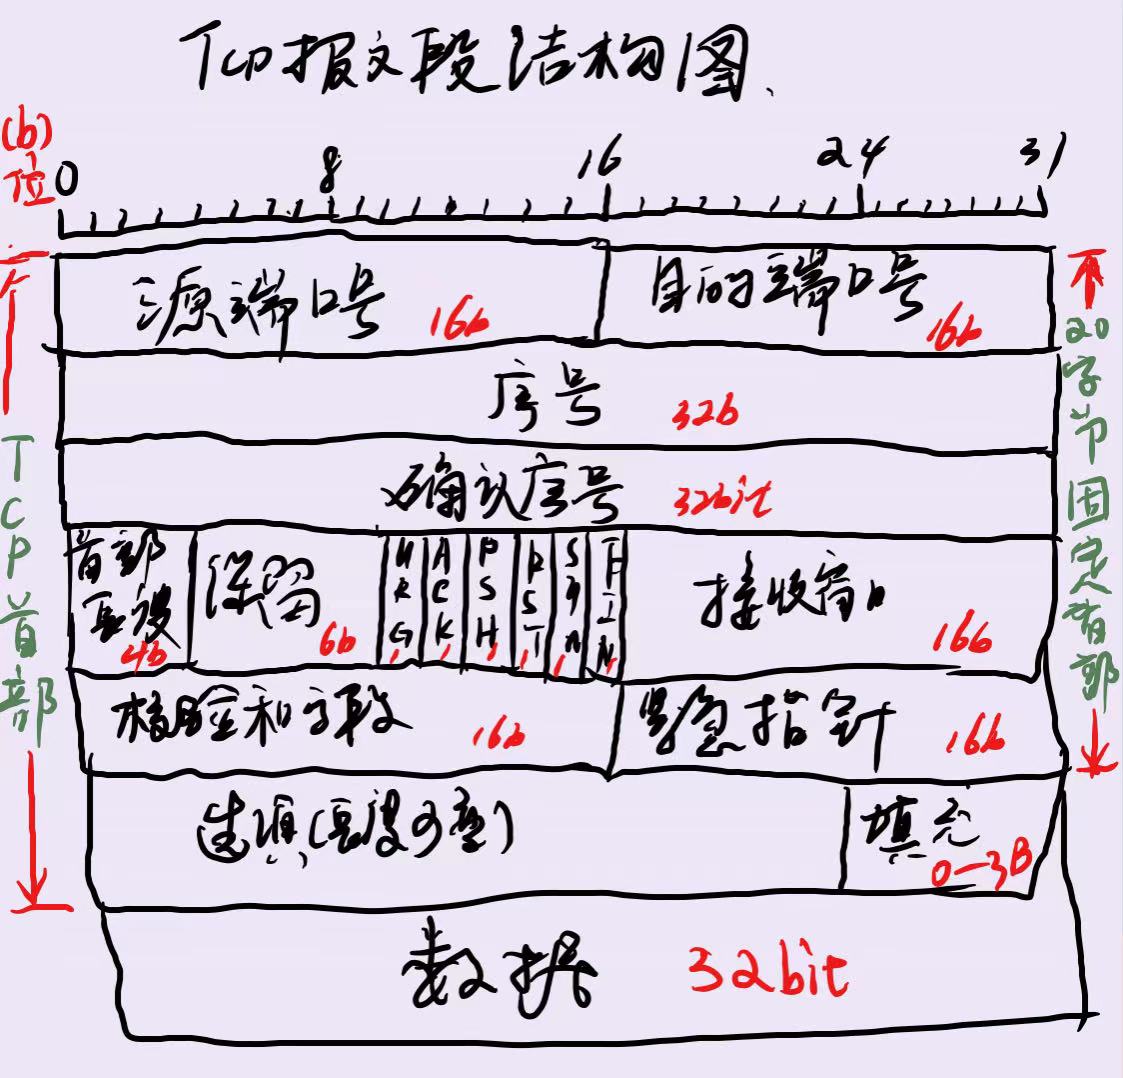 TCP报文段结构图
(b)
位 0 8 16 24 31
源端口号 16b 目的端口号 16b
序号 32b
确认序号 32bit
首部长度 4b 保留 6b URG 1 ACK 1 PSH 1 RST 1 SYN 1 FIN 1 接收窗口 16b
检验和字段 16b 紧急指针 16b
选项(长度可变) 填充 0-3B
数据 32bit
TCP首部
20字节固定首部